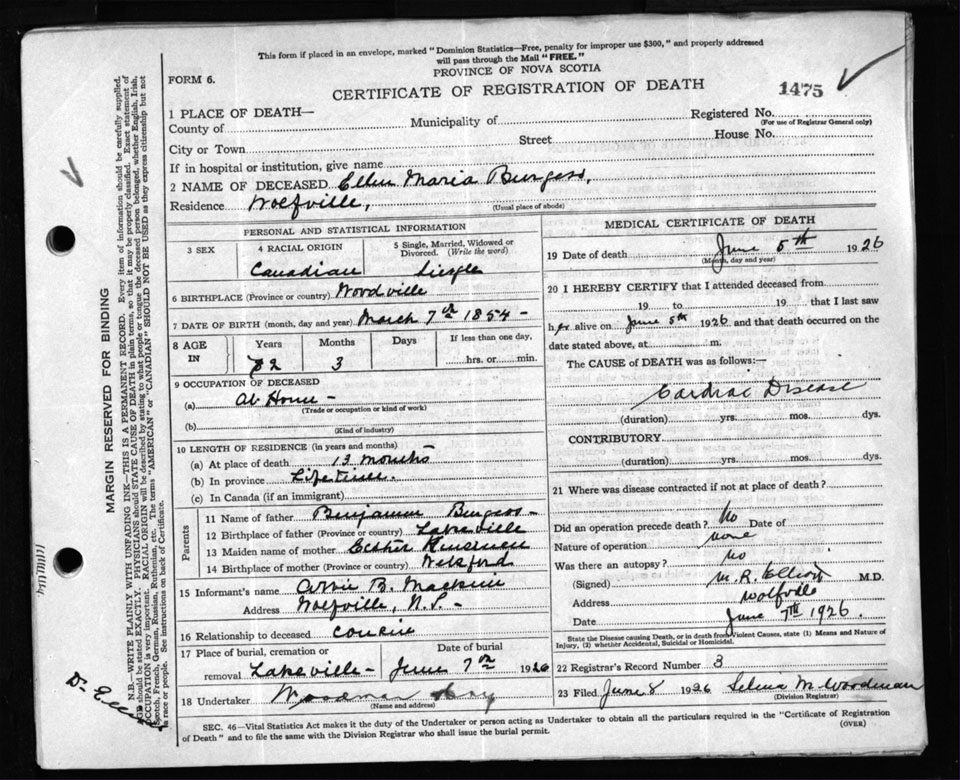 This form if placed in an envelope, marked "Dominion Statistics—Free, penalty for improper use $300," and properly addressed
will pass through the Mail "FREE."
PROVINCE OF NOVA SCOTIA
FORM 6.
CERTIFICATE OF REGISTRATION OF DEATH
1475
1 PLACE OF DEATH—
Registered No.
(For use of Registrar General only)
County of
Municipality of
City or Town
Street
House No.
If in hospital or institution, give name
2 NAME OF DECEASED Ellen Maria Burgess,
Residence Wolfville,
(Usual place of abode)
PERSONAL AND STATISTICAL INFORMATION
3 SEX
4 RACIAL ORIGIN
5 Single, Married, Widowed or Divorced. (Write the word)
Canadian
Single
6 BIRTHPLACE (Province or country) Woodville
7 DATE OF BIRTH (month, day and year) March 7th 1854 -
8 AGE IN
Years
Months
Days
If less than one day,
3
hrs. or min.
9 OCCUPATION OF DECEASED
(a) At Home -
(Trade or occupation or kind of work)
(b)
(Kind of industry)
10 LENGTH OF RESIDENCE (in years and months)
(a) At place of death 13 months
(b) In province Lifetime.
(c) In Canada (if an immigrant)
Parents
11 Name of father Benjamin Burgess -
12 Birthplace of father (Province or country) Lakeville
13 Maiden name of mother Esther Kinsman
14 Birthplace of mother (Province or country) Welsford
15 Informant's name B.
Address Wolfville, N.S. -
16 Relationship to deceased cousin
17 Place of burial, cremation or removal
Date of burial
Lakeville - June 7th 1926
18 Undertaker Woodman
(Name and address)
MEDICAL CERTIFICATE OF DEATH
19 Date of death June 5th 1926
(Month, day and year)
20 I HEREBY CERTIFY that I attended deceased from
19 to 19 that I last saw
her alive on June 5th 1926 and that death occurred on the
date stated above, at m.
The CAUSE of DEATH was as follows:
Cardiac Disease
(duration) yrs. mos. dys.
CONTRIBUTORY
(duration) yrs. mos. dys.
21 Where was disease contracted if not at place of death?
Did an operation precede death? No Date of
Nature of operation none
Was there an autopsy? no
(Signed) M.R. Elliott M.D.
Address Wolfville
Date June 7th 1926
State the Disease causing Death, or in death from Violent Causes, state (1) Means and Nature of
Injury, (2) whether Accidental, Suicidal or Homicidal.
22 Registrar's Record Number 3
23 Filed June 8 1926 M. Woodman
(Division Registrar)
SEC. 46—Vital Statistics Act makes it the duty of the Undertaker or person acting as Undertaker to obtain all the particulars required in the "Certificate of Registration
of Death" and to file the same with the Division Registrar who shall issue the burial permit.
(OVER)
MARGIN RESERVED FOR BINDING
N.B.—WRITE PLAINLY WITH UNFADING INK—THIS IS A PERMANENT RECORD. Every item of information should be carefully supplied.
AGE should be stated EXACTLY. PHYSICIANS should STATE CAUSE OF DEATH in plain terms, so that it may be properly classified. Exact statement of
OCCUPATION is very important. RACIAL ORIGIN will be described by stating to what people or tongue the deceased person belonged, whether English, Irish,
Scotch, French, German, Russian, Ruthenian, etc. The terms "AMERICAN" or "CANADIAN" SHOULD NOT BE USED as they express citizenship but not
a race or people. See instructions on back of Certificate.